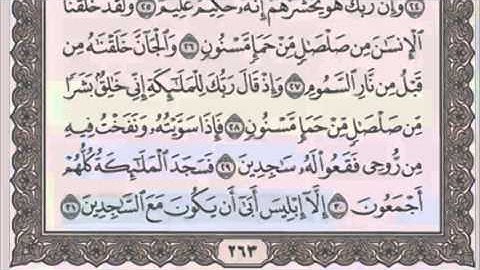 ٢٤ وَإِنَّ رَبَّكَ هُوَ يَحْشُرُهُمْ إِنَّهُۥ حَكِيمٌ عَلِيمٌ ٢٥ وَلَقَدْ خَلَقْنَا
ٱلْإِنسَٰنَ مِن صَلْصَٰلٍ مِّنْ حَمَإٍ مَّسْنُونٍ ٢٦ وَٱلْجَآنَّ خَلَقْنَٰهُ مِن
قَبْلُ مِن نَّارِ ٱلسَّمُومِ ٢٧ وَإِذْ قَالَ رَبُّكَ لِلْمَلَٰٓئِكَةِ إِنِّى خَٰلِقٌۢ بَشَرًا
مِّن صَلْصَٰلٍ مِّنْ حَمَإٍ مَّسْنُونٍ ٢٨ فَإِذَا سَوَّيْتُهُۥ وَنَفَخْتُ فِيهِ
مِن رُّوحِى فَقَعُوا۟ لَهُۥ سَٰجِدِينَ ٢٩ فَسَجَدَ ٱلْمَلَٰٓئِكَةُ كُلُّهُمْ
أَجْمَعُونَ ٣٠ إِلَّآ إِبْلِيسَ أَبَىٰٓ أَن يَكُونَ مَعَ ٱلسَّٰجِدِينَ ٣١
٢٦٣